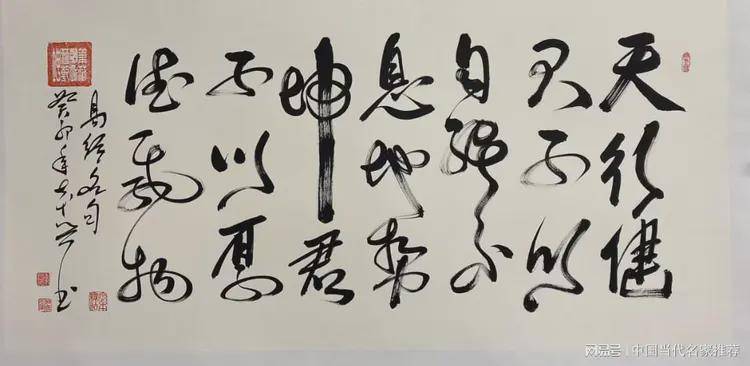 天行健
君子以
自强不
息地势
坤君
子以厚
德载物
易经名句
癸卯年
书
网易号 | 中国当代名家推荐